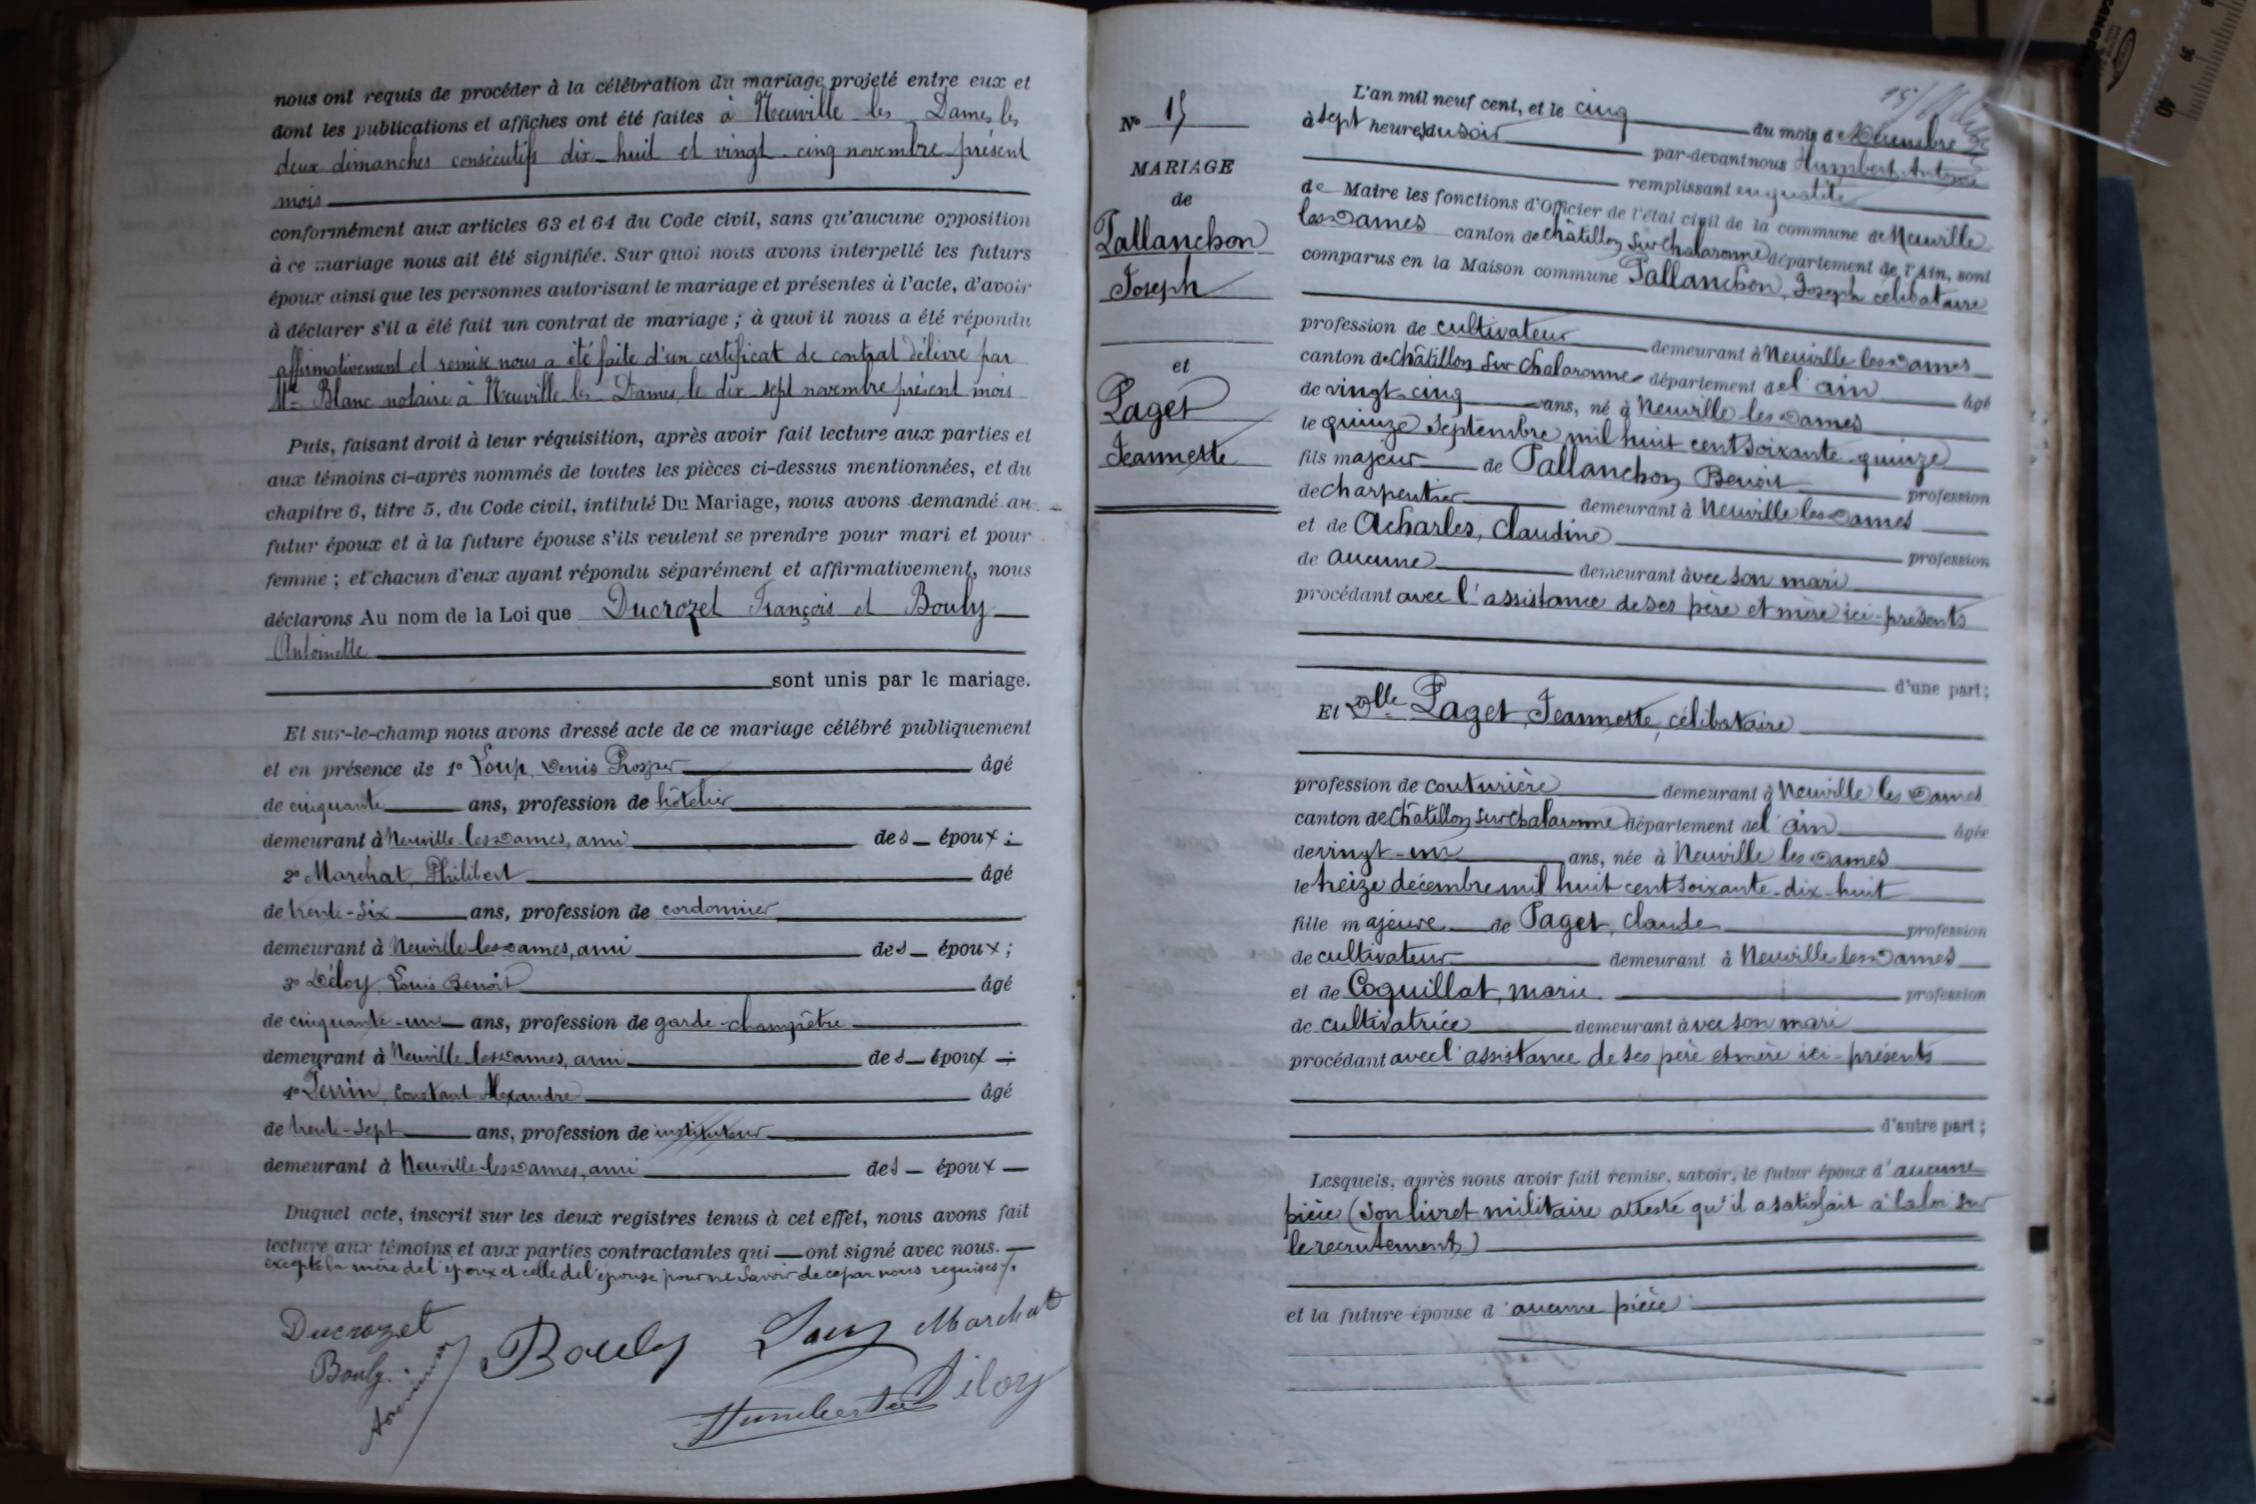 nous ont requis de procéder à la célébration du mariage projeté entre eux et
dont les publications et affiches ont été faites à Neuville les Dames les
deux dimanches consécutifs dix-huit et vingt cinq novembre présent
mois
conformément aux articles 63 et 64 du Code civil, sans qu'aucune opposition
à ce mariage nous ait été signifiée. Sur quoi nous avons interpellé les futurs
époux ainsi que les personnes autorisant le mariage et présentes à l'acte, d'avoir
à déclarer s'il a été fait un contrat de mariage ; à quoi il nous a été répondu
affirmativement et remise nous a été faite d'un certificat de contrat délivré par
Me Blanc notaire à Neuville les Dames, le dix sept novembre présent mois
Puis, faisant droit à leur réquisition, après avoir fait lecture aux parties et
aux témoins ci-après nommés de toutes les pièces ci-dessus mentionnées, et du
chapitre 6, titre 5, du Code civil, intitulé Du Mariage, nous avons demandé au
futur époux et à la future épouse s'ils veulent se prendre pour mari et pour
femme ; et chacun d'eux ayant répondu séparément et affirmativement, nous
déclarons Au nom de la Loi que Ducrozet François et Bouly
Antoinette
sont unis par le mariage.
Et sur-le-champ nous avons dressé acte de ce mariage célébré publiquement
et en présence de 1° Loup, Denis Prosper âgé
de cinquante ans, profession de hôtelier
demeurant à Neuville-les-Dames, ami des époux ;
2° Marchat, Philibert âgé
de trente-six ans, profession de cordonnier
demeurant à Neuville les Dames, ami des époux ;
3° Déloy, Louis Benoît âgé
de cinquante-un ans, profession de garde-champêtre
demeurant à Neuville-les-Dames, ami des époux ;
4° Perrin, Constant Alexandre âgé
de trente-sept ans, profession de instituteur
demeurant à Neuville-les-Dames, ami des époux
Duquel acte, inscrit sur les deux registres tenus à cet effet, nous avons fait
lecture aux témoins et aux parties contractantes qui ont signé avec nous.
excepté la mère de l'époux et celle de l'épouse pour ne savoir de ce par nous requises
Ducrozet
Bouly
Bouly
Loup
Marchat
Humbert
Déloy
N° 15
MARIAGE
de
Pallanchon
Joseph
et
Paget
Jeannette
L'an mil neuf cent, et le cinq du mois de Décembre
à sept heures du soir par-devant nous Humbert Antoine
remplissant en qualité
de Maire les fonctions d'Officier de l'état civil de la commune de Neuville
les Dames canton de Châtillon sur Chalaronne département de l'Ain, sont
comparus en la Maison commune Pallanchon, Joseph célibataire
profession de cultivateur demeurant à Neuville les Dames
canton de Châtillon sur Chalaronne département de l'ain âgé
de vingt-cinq ans, né à Neuville les Dames
le quinze septembre mil huit cent soixante-quinze
fils majeur de Pallanchon Benoit profession
de charpentier demeurant à Neuville les Dames
et de Acharles, Claudine profession
de aucune demeurant avec son mari
procédant avec l'assistance de ses père et mère ici-présents
d'une part ;
Et Dlle Paget, Jeannette, célibataire
profession de couturière demeurant à Neuville les Dames
canton de Châtillon sur Chalaronne département de l'ain âgée
de vingt-un ans, née à Neuville les Dames
le treize décembre mil huit cent soixante-dix-huit
fille majeure de Paget, Claude profession
de cultivateur demeurant à Neuville les Dames
et de Coquillat, Marie profession
de cultivatrice demeurant avec son mari
procédant avec l'assistance de ses père et mère ici-présents
d'autre part ;
Lesquels, après nous avoir fait remise, savoir, le futur époux d'aucune
pièce (Son livret militaire atteste qu'il a satisfait à la loi sur
le recrutement)
et la future épouse d'aucune pièce